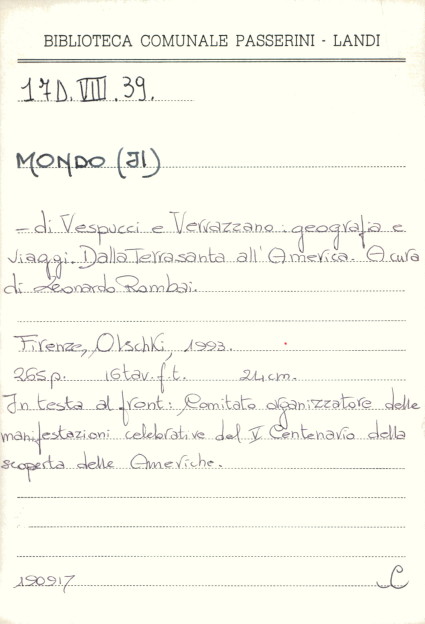 BIBLIOTECA COMUNALE PASSERINI - LANDI
17D.VIII.39.
MONDO (Il)
- di Vespucci e Verrazzano: geografia e
viaggi. Dalla Terrasanta all'America. A cura
di Leonardo Rombai.
Firenze, Olschki, 1993.
265p. 16tav.f.t. 24cm.
In testa al front: Comitato organizzatore delle
manifestazioni celebrative del V Centenario della
scoperta delle Americhe.
190917 C